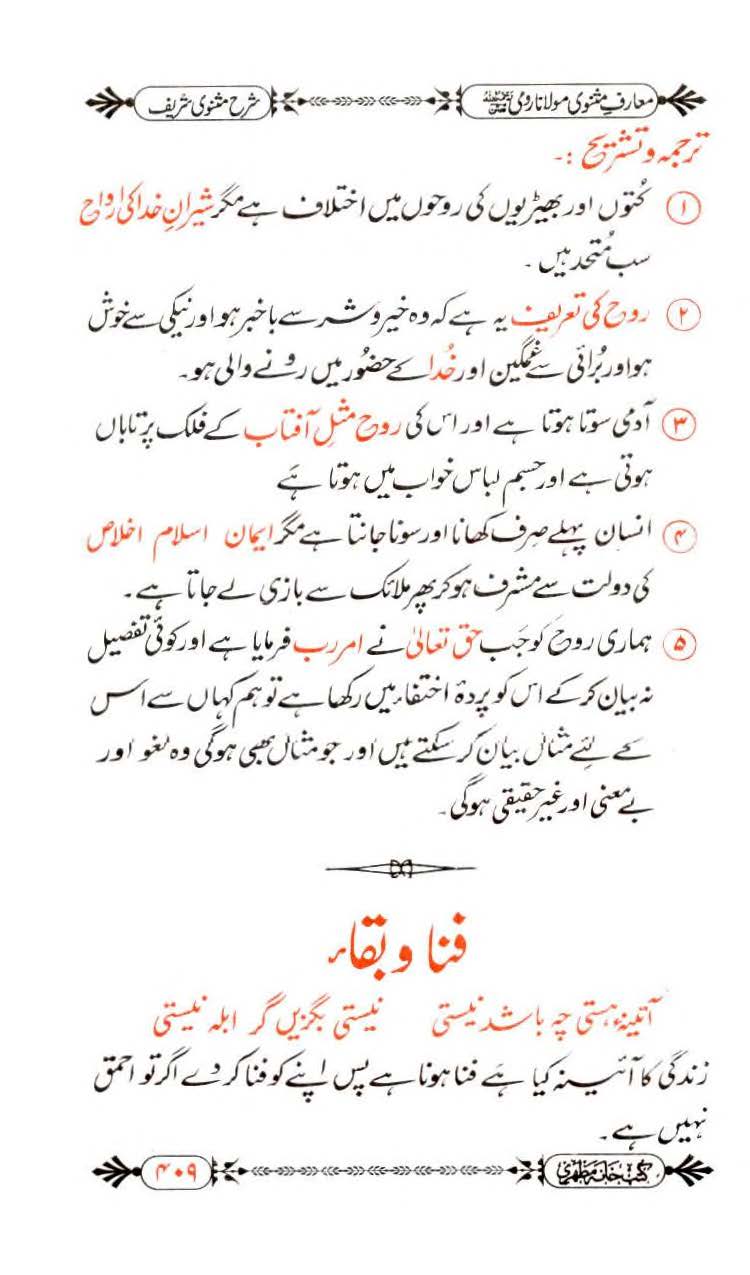 معارفِ مثنوی مولانا رومی رحمۃ اللہ علیہ
شرح مثنوی شریف
ترجمہ و تشریح :۔
۱ کُتوں اور بھیڑیوں کی روحوں میں اختلاف ہے مگر شیرانِ خدا کی ارواح
سب مُتحد ہیں ۔
۲ روح کی تعریف یہ ہے کہ وہ خیر و شر سے باخبر ہو اور نیکی سے خوش
ہو اور بُرائی سے غمگین اور خُدا کے حضُور میں رونے والی ہو۔
۳ آدمی سوتا ہوتا ہے اور اس کی روح مثلِ آفتاب کے فلک پر تاباں
ہوتی ہے اور جسم لباس خواب میں ہوتا ہَے
۴ انسان پہلے صِرف کھانا اور سونا جانتا ہے مگر ایمان اسلام اخلاص
کی دولت سے مشرف ہو کر پھر ملائک سے بازی لے جاتا ہے ۔
۵ ہماری روح کو جَب حق تعالیٰ نے امر رب فرمایا ہے اور کوئی تفصیل
نہ بیان کر کے اس کو پردۂ اختفاء میں رکھا ہے تو ہم کہاں سے اس
کے لئے مثال بیان کر سکتے ہیں اور جو مثال بھی ہوگی وہ لغو اور
بے معنی اور غیر حقیقی ہوگی۔
فنا و بقاء
آئینۂ ہستی چہ باشد نیستی نیستی بگزیں گر ابلہ نیستی
زندگی کا آئینہ کیا ہَے فنا ہونا ہے پس اپنے کو فنا کر دے اگر تو احمق
نہیں ہے ۔
کتب خانہ مظہری
۴۰۹